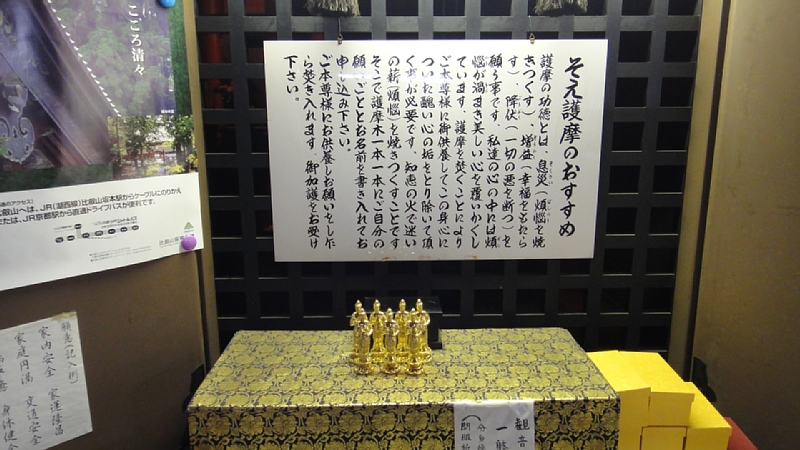 そえ護摩のおすすめ
護摩の功徳とは、息災(煩悩を焼
きつくす)、増益(幸福をもたら
す)、降伏(一切の悪を断つ)を
願う事です。私達の心の中には煩
悩が渦まき美しい心を覆いかくし
ています。護摩を焚くことにより
ご本尊様に御供養してこの身心に
ついた醜い心の垢をとり除いて頂
くずが必要です。知恵の火で迷い
の薪(煩悩)を焼きつくすことです
そこで護摩木一本一本にご自分の
願いごととお名前を書き入れてお
申し込み下さい。
ご本尊様にお供養しお願いをしな
ら焚き入れます。御加護をお受け
下さい。
こころ清々
のアクセス〉
比叡山へは、JR(湖西線)比叡山坂本駅からケーブルにのりかえ
または、JR京都駅から直通ドライブバスが便利です。
願意(記入例)
家内安全 家運隆昌
家庭円満 交通安全
身体健全
観音
一躰